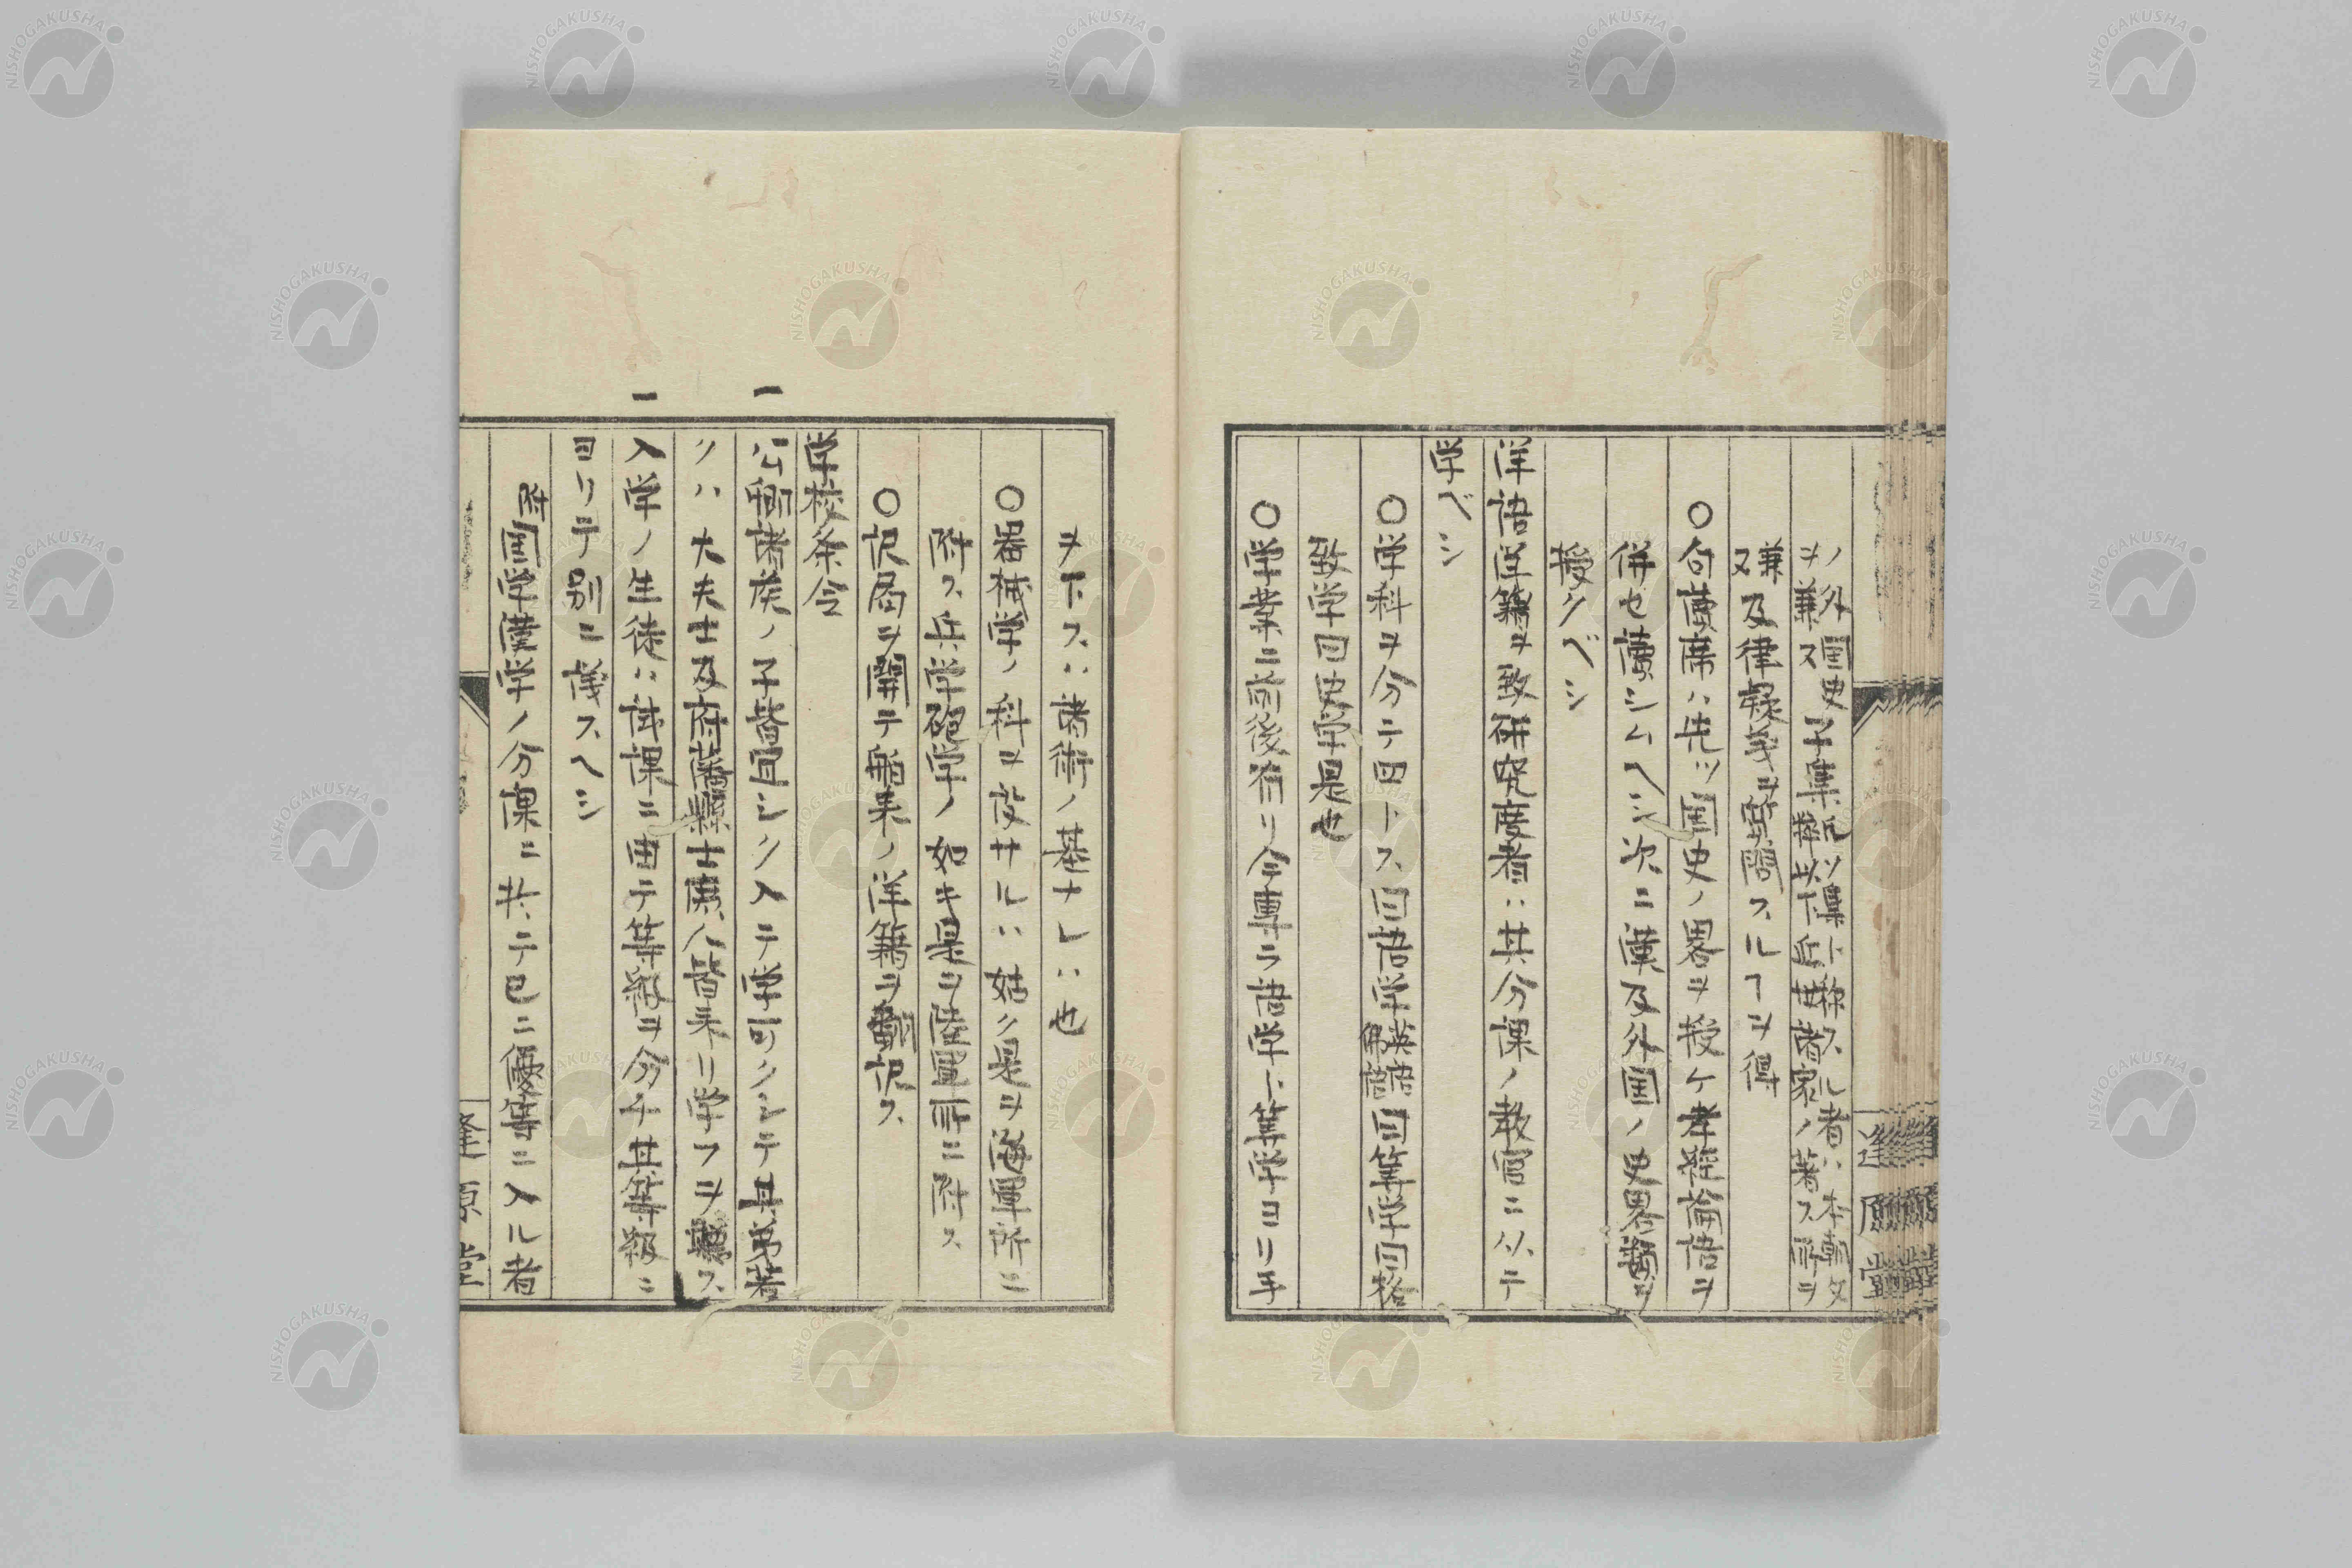 ノ外国史
ヲ兼又子集
兼又及律疑義ヲ質問スルヿヲ得
〇句讀席ハ先ツ国史ノ畧ヲ授ケ孝経論語ヲ
併セ讀シムヘシ次ニ漢及外国ノ史畧類ヲ
授クベシ
洋語洋籍ヲ致研究度者ハ其分課ノ教官ニ从テ
学ベシ
〇学科ヲ分テ四トス曰語学英語佛語曰算学曰格
致学曰史学是也
〇学業ニ前後有リ今専ラ語学ト算学ヨリ手
ヲ下スハ諸術ノ基ナレハ也
〇器械学ノ科ヲ設サルハ姑ク是ヲ海軍所ニ
附ス兵学砲学ノ如キ是ヲ陸軍所ニ附ス
〇訳局ヲ開テ舶来ノ洋籍ヲ翻訳ス
学校条令
一公卿諸矦ノ子皆宜シク入テ学可クシテ其弟若
クハ大夫士及府藩縣士庶人皆来リ学フヲ聴ス
一入学ノ生徒ハ試課ニ由テ等級ヲ分チ其等級ニ
ヨリテ別ニ議スヘシ
附国学漢学ノ分課ニ共ニテ已ニ優等ニ入ル者
逢原堂